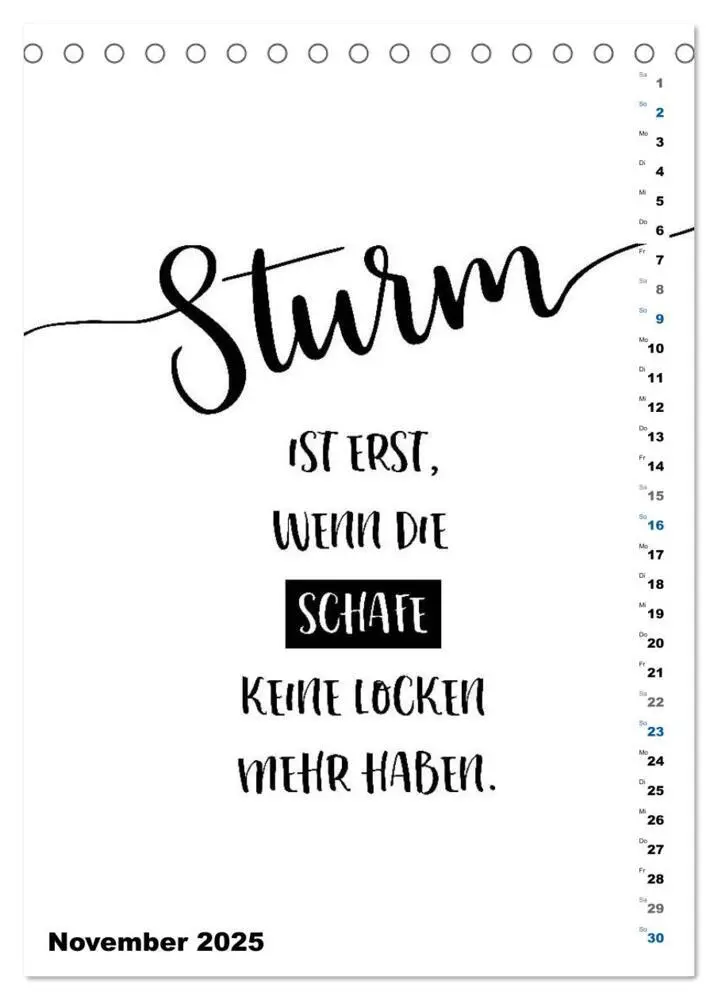 Sturm
IST ERST,
WENN DIE
SCHAFE
KEINE LOCKEN
MEHR HABEN.
November 2025
Sa 1
So 2
Mo 3
Di 4
Mi 5
Do 6
Fr 7
Sa 8
So 9
Mo 10
Di 11
Mi 12
Do 13
Fr 14
Sa 15
So 16
Mo 17
Di 18
Mi 19
Do 20
Fr 21
Sa 22
So 23
Mo 24
Di 25
Mi 26
Do 27
Fr 28
Sa 29
So 30